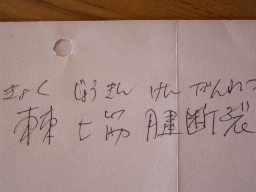 きょく じょうきん けんだんれつ
棘上筋腱断裂